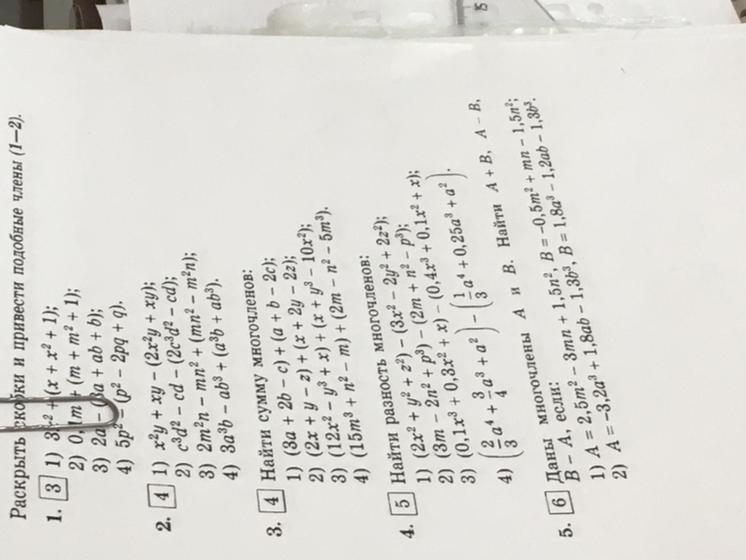 Раскрыть скобки и привести подобные члены (1—2).
1. 3 1) 3x² + (x + x² + 1);
2) 0,1m + (m + m² + 1);
3) 2a (3a + ab + b);
4) 5p² - (p² - 2pq + q).
2. 4 1) x²y + xy - (2x²y + xy);
2) c³d² - cd - (2c³d² - cd);
3) 2m²n - mn² + (mn² - m²n);
4) 3a³b - ab³ + (a³b + ab³).
3. 4 Найти сумму многочленов:
1) (3a + 2b - c) + (a + b - 2c);
2) (2x + y - z) + (x + 2y - 2z);
3) (12x² - y³ + x) + (x + y³ - 10x²);
4) (15m³ + n² - m) + (2m - n² - 5m³).
4. 5 Найти разность многочленов:
1) (2x² + y² + z²) - (3x² - 2y² + 2z²);
2) (3m - 2n² + p³) - (2m + n² - p³);
3) (0,1x³ + 0,3x² + x) - (0,4x³ + 0,1x² + x);
4) (2/3 a⁴ + 3/4 a³ + a²) - (1/3 a⁴ + 0,25a³ + a²).
5. 6 Даны многочлены A и B. Найти A + B, A - B,
B - A, если:
1) A = 2,5m² - 3mn + 1,5n², B = -0,5m² + mn - 1,5n²;
2) A = -3,2a³ + 1,8ab - 1,3b³, B = 1,8a³ - 1,2ab - 1,3b³.